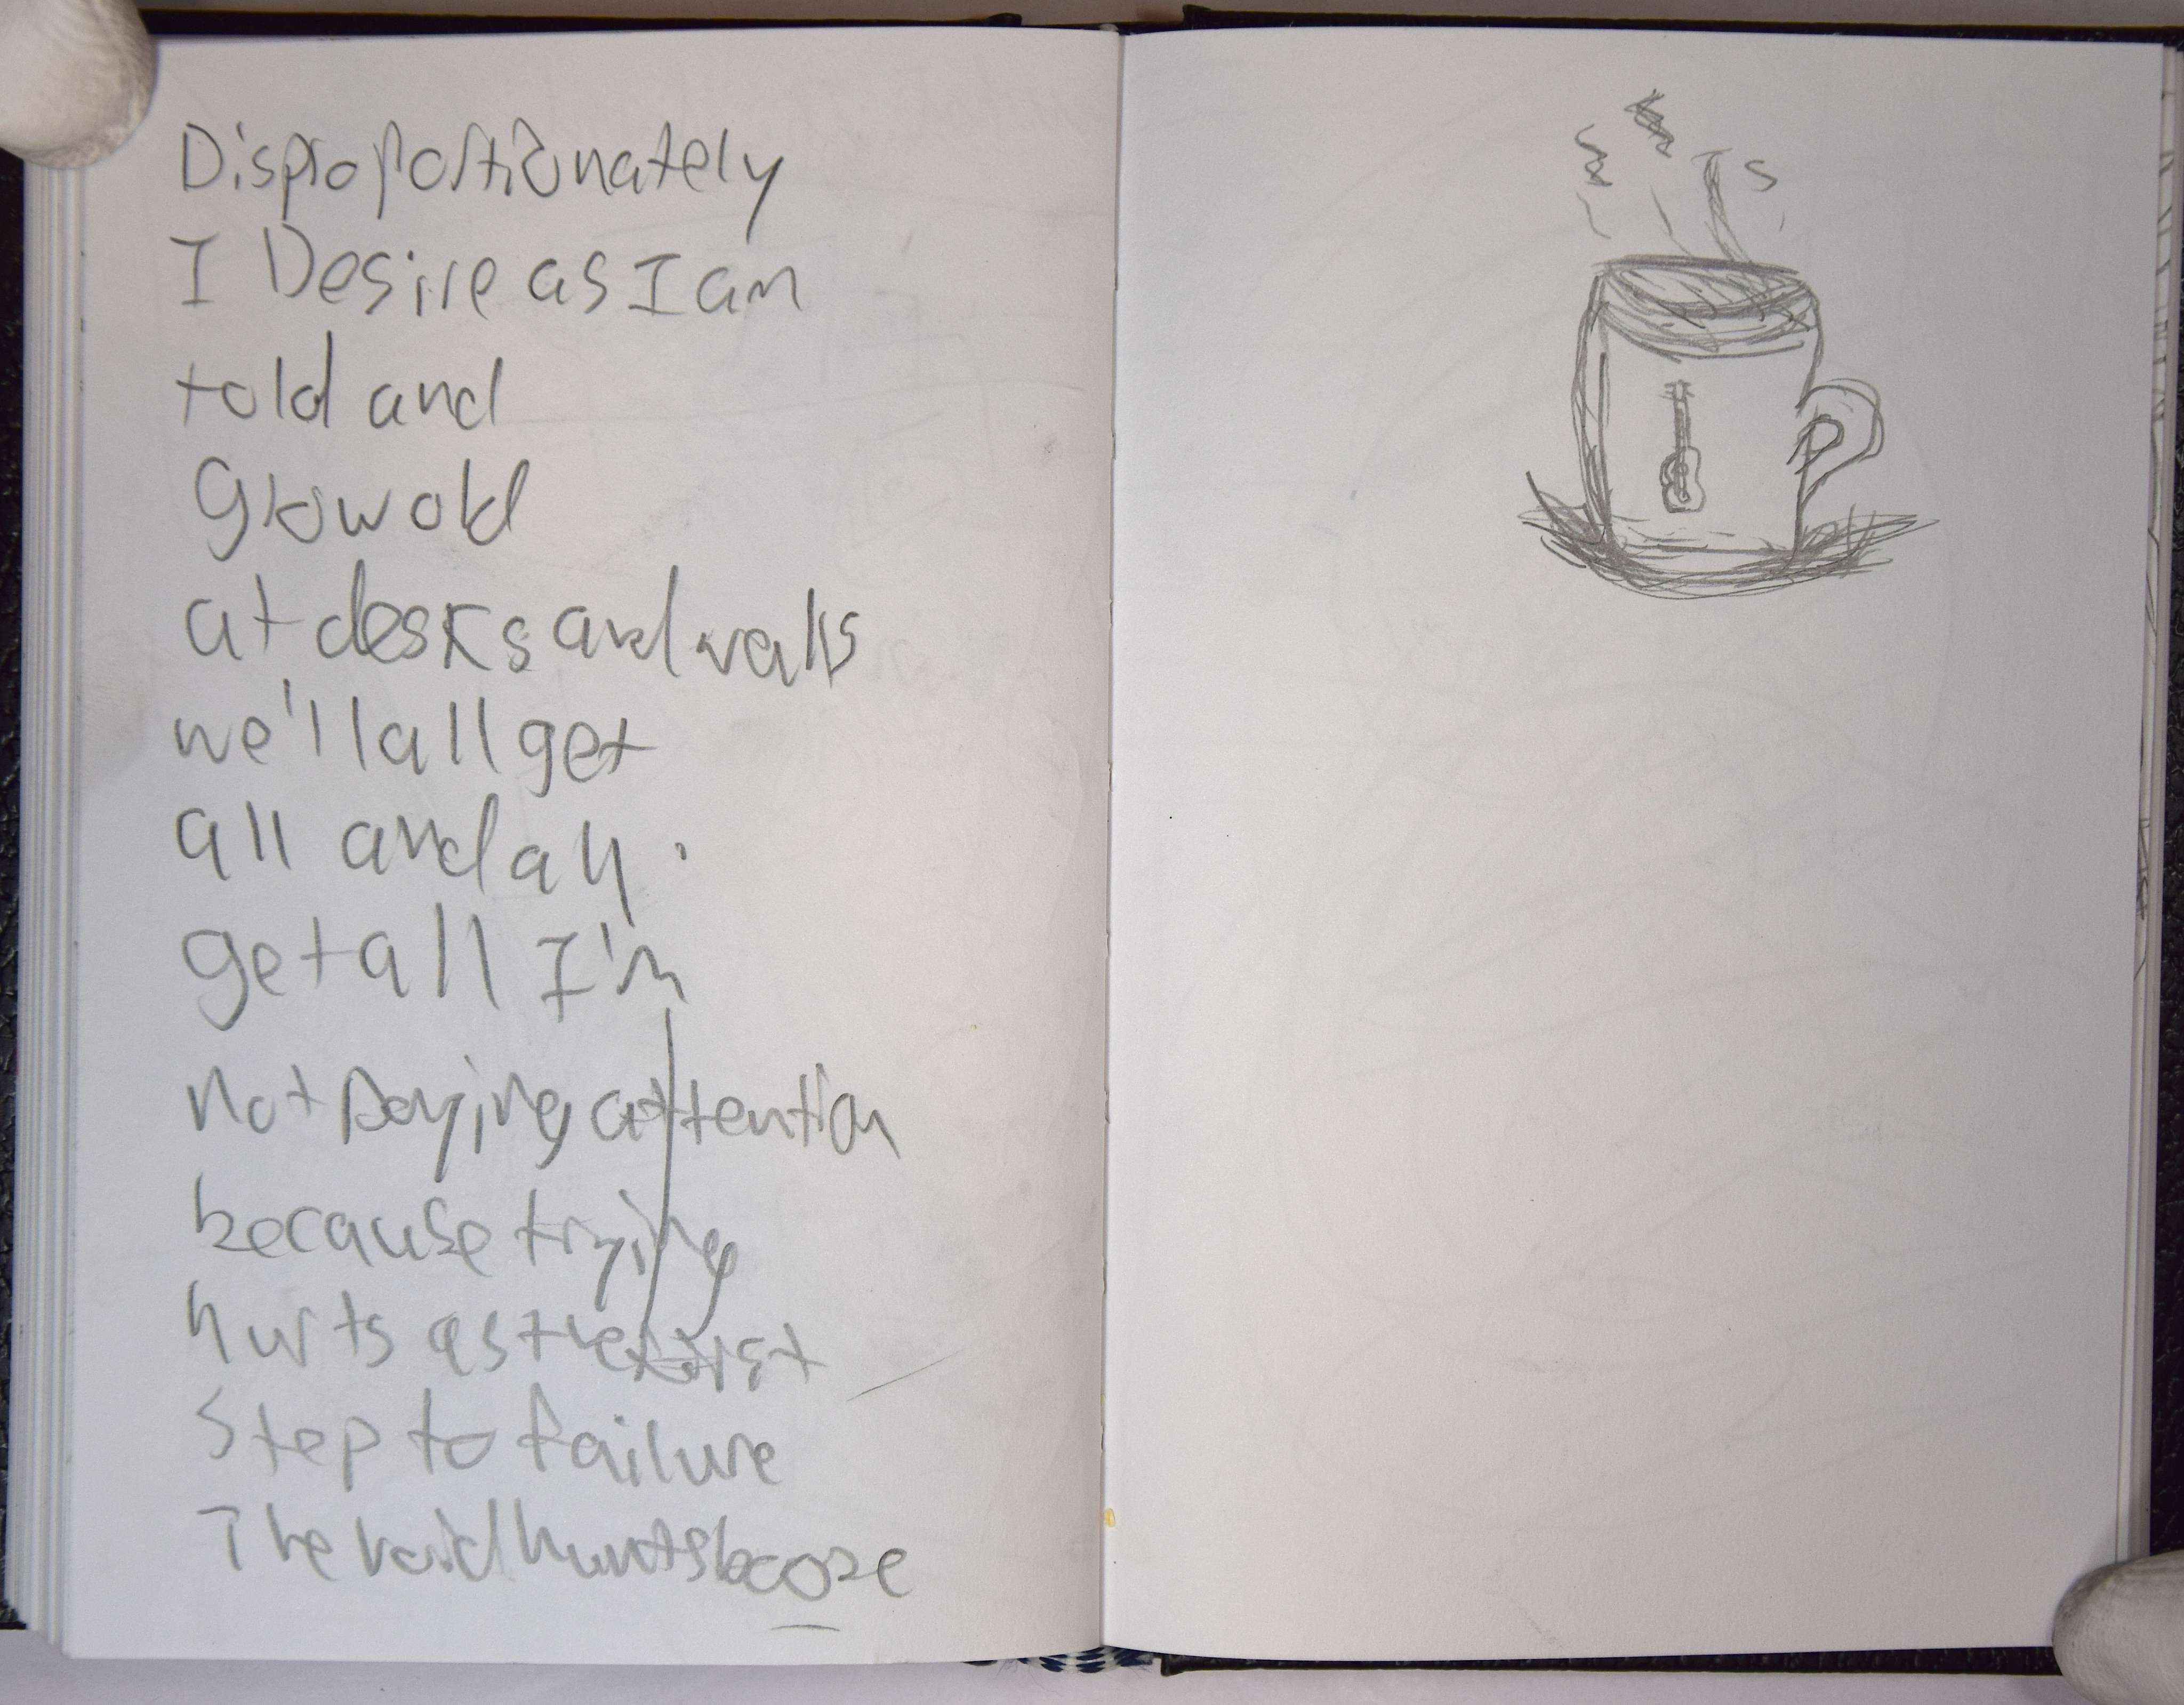 Disproportionately
I Desire as I am
told and
Grow old
at desks and walls
we'll all get
all and all.
get all I'm
not paying attention
because trying
hurts as the first
Step to failure
The void hunts